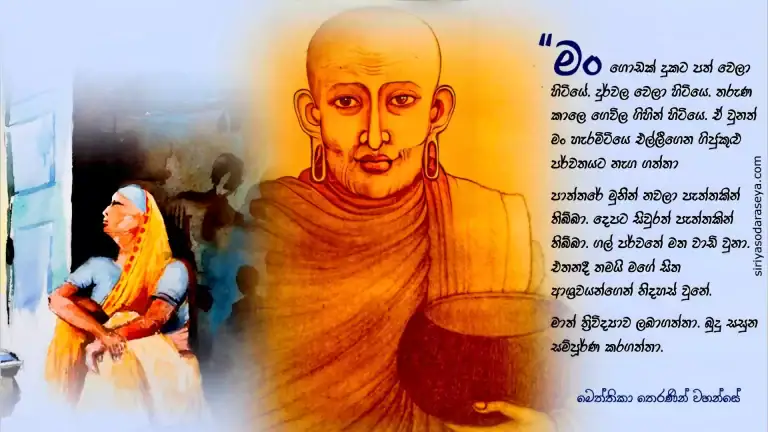 “මං ගොඩක් දුකට පත් වෙලා
හිටියේ. දුර්වල වෙලා හිටියෙ. තරුණ
කාලෙ ගෙවිල ගිහින් හිටියෙ. ඒ වුනත්
මං හැරමිටියෙ එල්ලීගෙන ගිජුකුළු
පර්වතයට නැග ගත්තා
පාත්තරේ මුනින් නවලා පැත්තකින්
තිබ්බා. දෙපට සිවුරත් පැත්තකින්
තිබ්බා. ගල් පර්වතේ මත වාඩි වුනා.
එතනදී තමයි මගේ සිත
ආශ්‍රවයන්ගෙන් නිදහස් වුනේ.
මාත් ත්‍රිවිද්‍යාව ලබාගත්තා. බුදු සසුන
සම්පූර්ණ කරගත්තා.
මෙත්තිකා තෙරණින් වහන්සේ
siriyasodaraseya.com